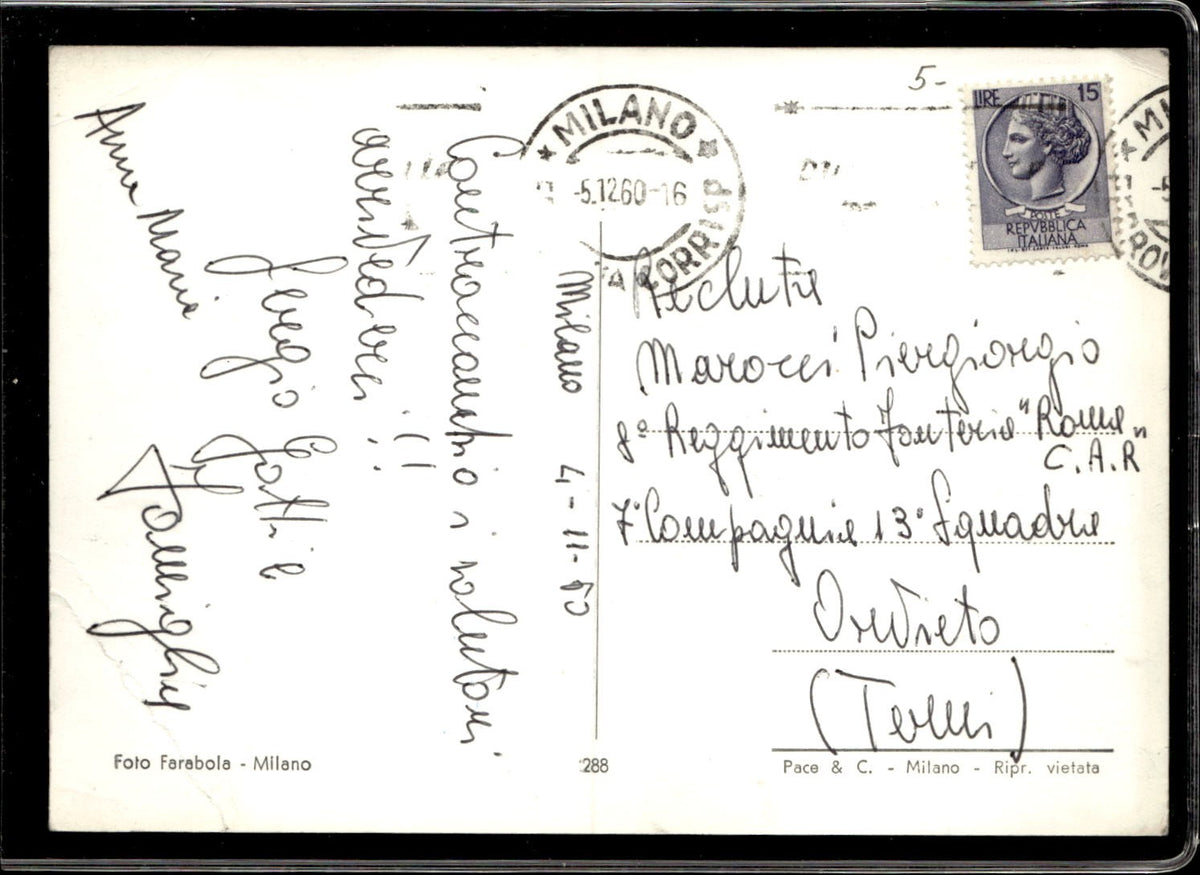 5-
LIRE 15
POSTE
REPVBBLICA
ITALIANA
MILANO
-5.1260-16
A CORRISP
Milano 4-11-60
Contraccambio i saluti
arrivederci !!
Sergio Gatti e
Famiglia
Anna Maria
Recluta
Marocci Piergiorgio
8º Reggimento Fanteria "Roma"
C.A.R
7ª Compagnia 13ª Squadra
Orvieto
(Terni)
Foto Farabola - Milano
288
Pace & C. - Milano - Ripr. vietata